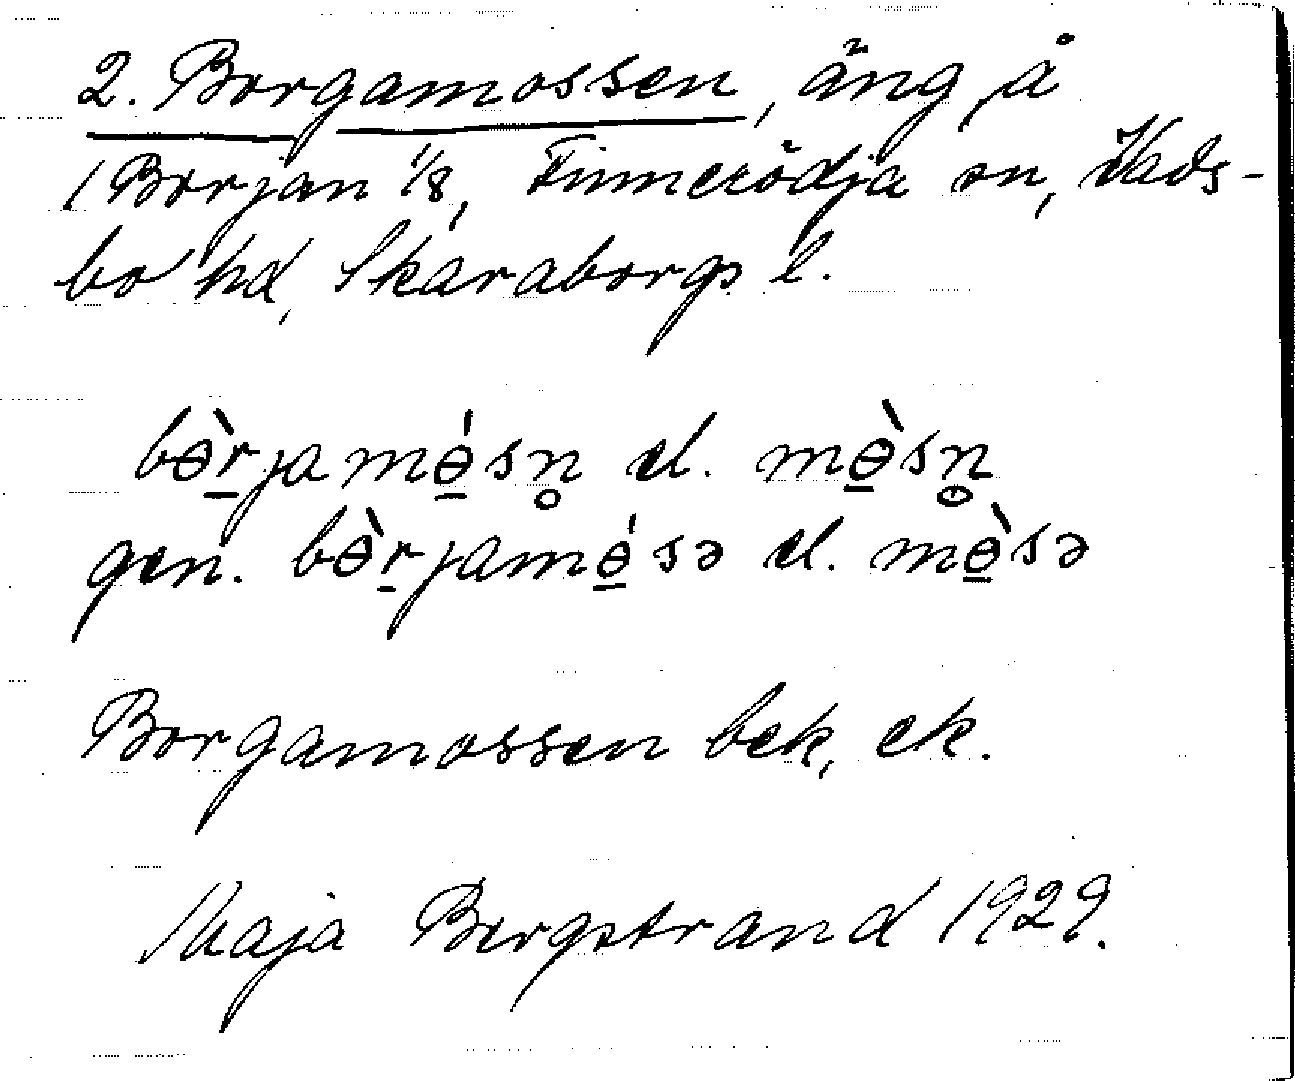 2. Borgamossen, äng å
1 Borjan 1/8, Finnerödja sn, Vads-
bo hd, Skaraborgs l.
bɵ̀r̠jamɵ̠́sn̥ el. mɵ̠̀sn̥
gen. bɵ̀r̠jamɵ̠́sə el. mɵ̠̀sə
Borgamossen bek, ek.
Maja Bergstrand 1929.